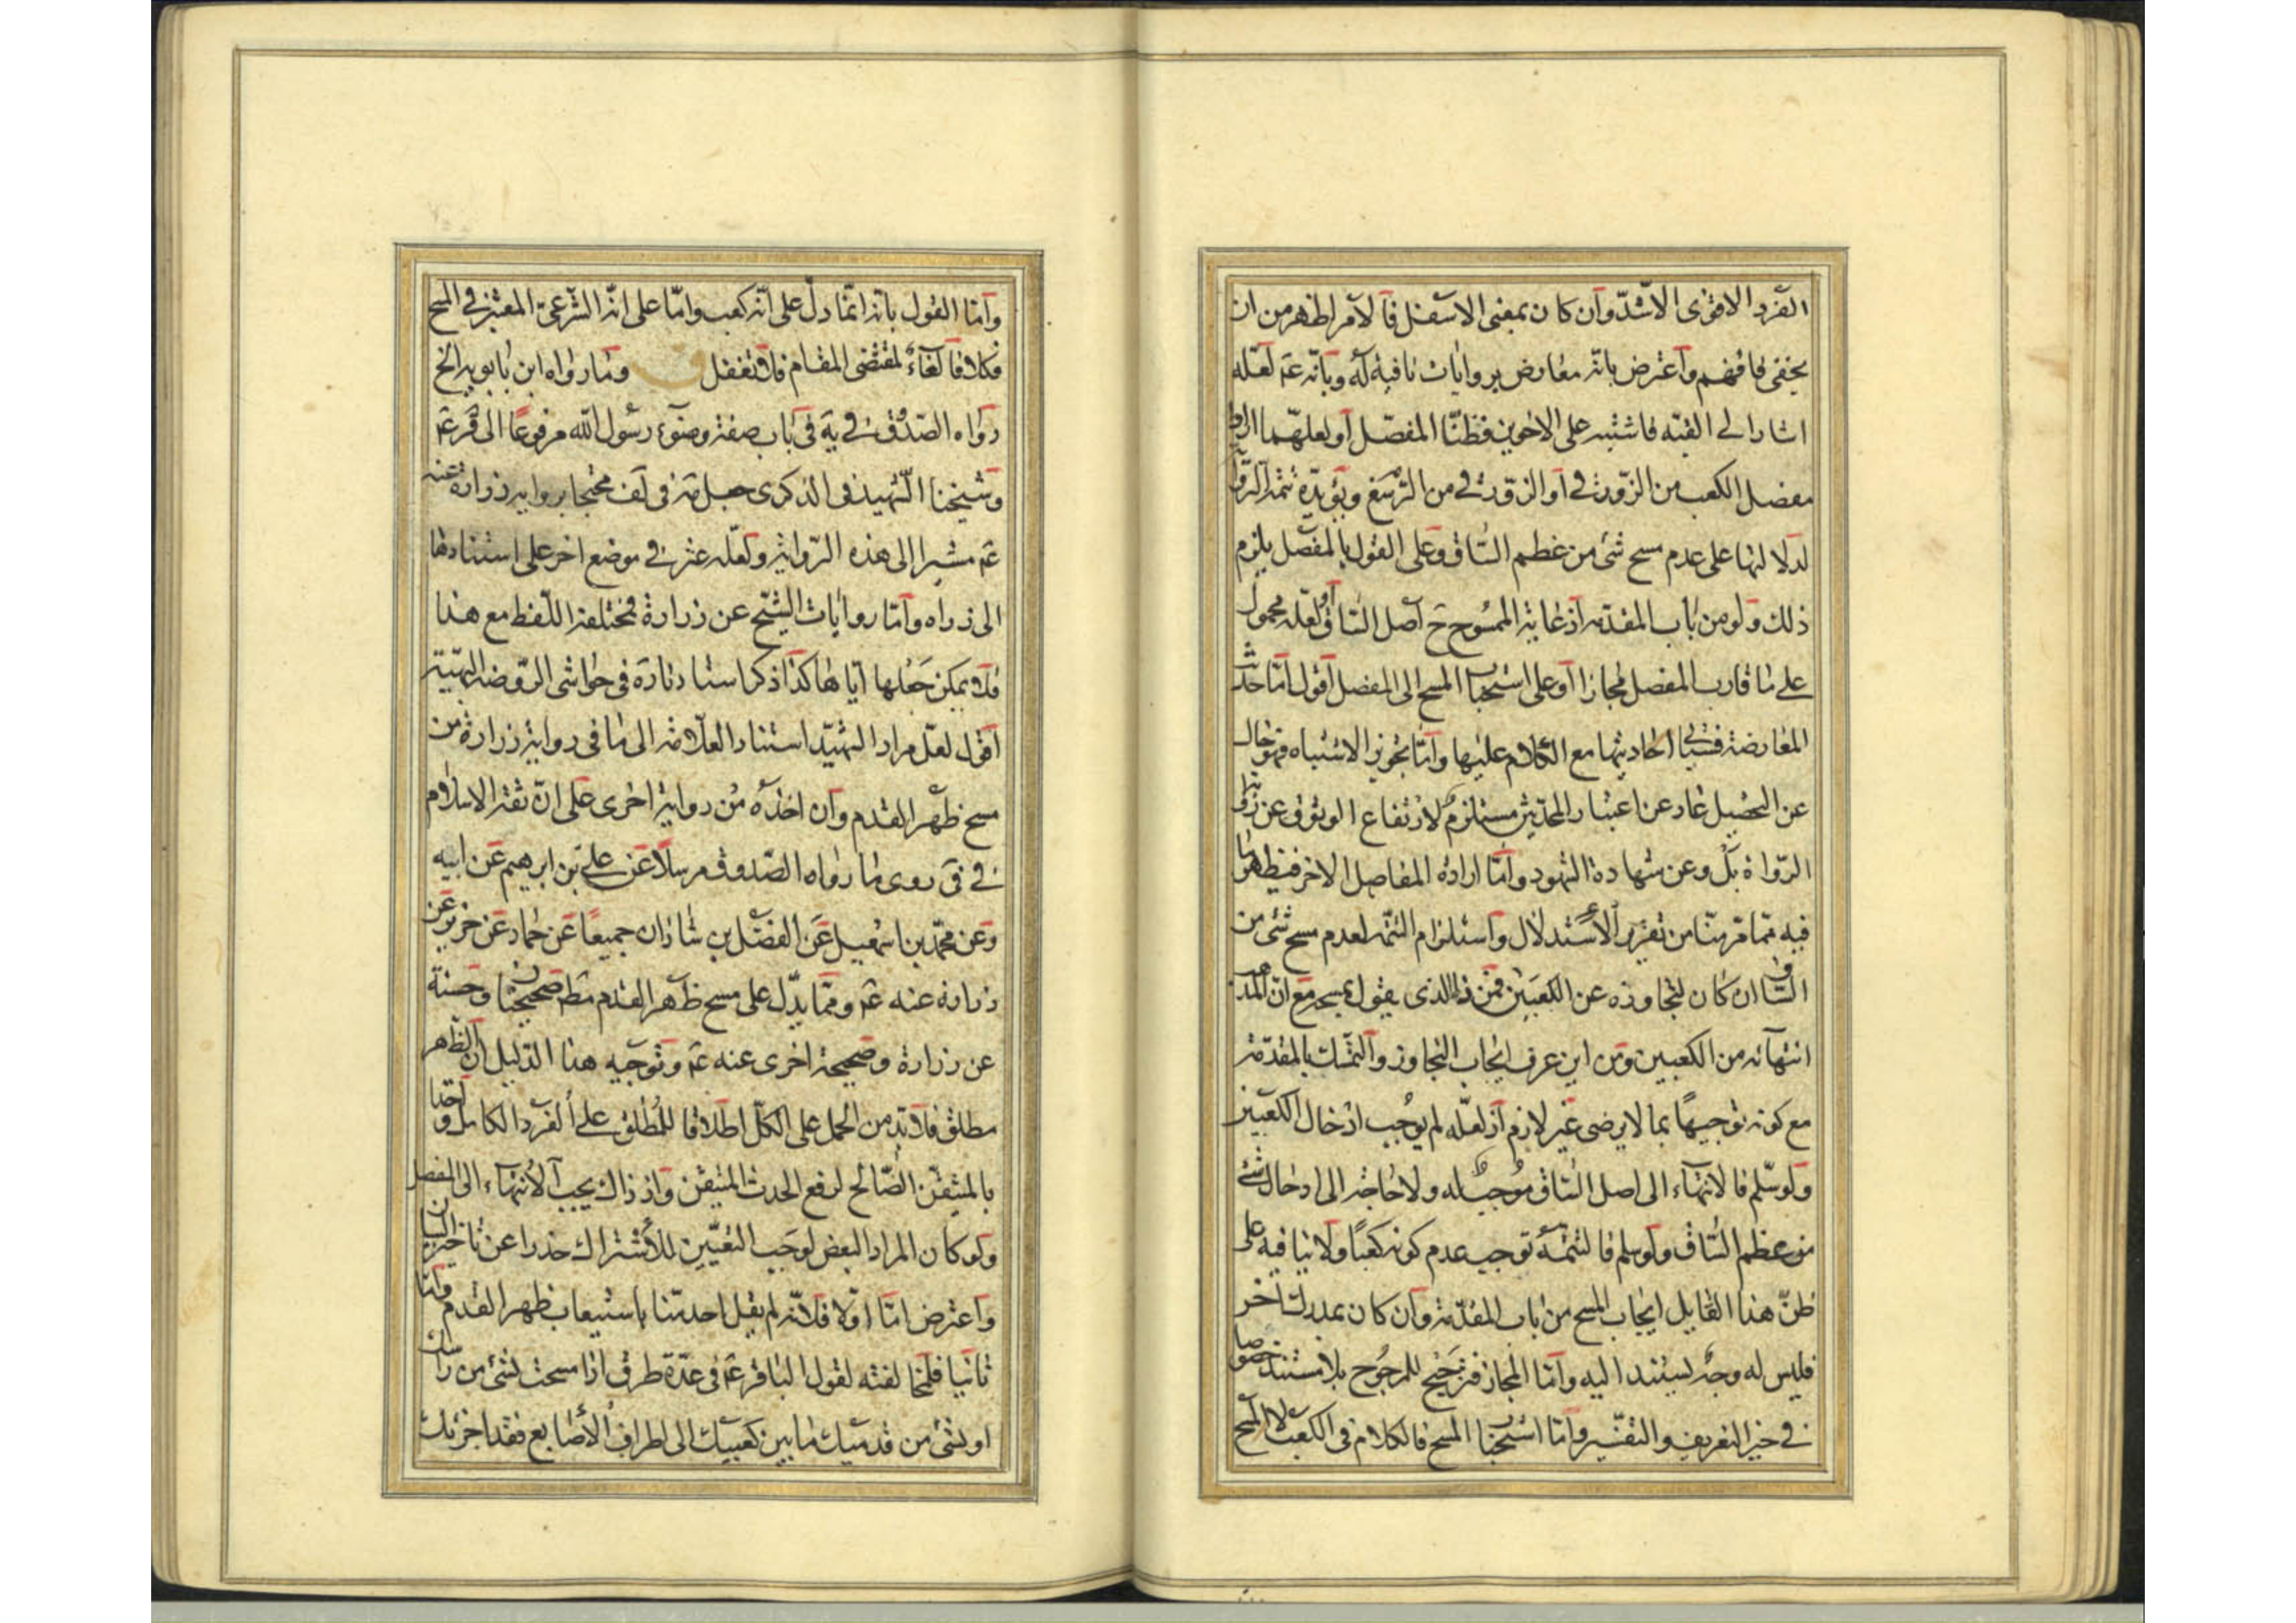 الفرد الاقوى الاشدّ وان كان بمعنى الاسفل فالامر اظهر من ان
يخفى فافهم واعترض بانّه معارض بروايات نافية له وبانّه عم لعلّه
اشار الى القبّه فاشتبه على الاخوين فظنّا المفصل او لعلّهما ارادا
مفصل الكعب من الزورقى او الزورقى من الرسغ ويؤيّده تتمة الرواية
لدلالتها على عدم مسح شئ من عظم الساق وعلى القول بالمفصل يلزم
ذلك ولو من باب المقدّمه اذ غاية الممسوح ح اصل الساق او لعلّه محمول
على ما قارب المفصل مجازا او على استحباب المسح الى المفصل اقول امّا حديث
المعارضة فسيأتى احاديثها مع الكلام عليها وامّا تجويز الاشتباه فهو خال
عن التحصيل عار عن اعتبار المحدّثين مستلزم لارتفاع الوثوق عن
الرواة بل وعن شهادة الشهود وامّا ارادة المفاصل الاخر فيظهر ما
فيه ممّا قرّرنا من تقرير الاستدلال واستلزام التتمّه لعدم مسح شئ من
الساق ان كان لتجاوزه عن الكعبين فمن ذا الذى يقول بمسحه مع انّ
انتهائه من الكعبين ومن اين عرف ايجاب التجاوز والتمسّك بالمقدّمة
مع كونه توجيهًا بما لا يرضى غير لازم اذ لعلّه لم يوجب ادخال الكعبين
ولو سلّم فالانتهاء الى اصل الساق موجب له ولا حاجة الى ادخال شئ
من عظم الساق ولو سلم فالتتمّة توجب عدم كونه كعبًا ولا ينافيه على
ظنّ هذا القايل ايجاب المسح من باب المقدّمة وان كان بمدرك آخر
فليس له وجه ليستند اليه وامّا المجاز فترجيح للمرجوح بلا مستند خصوصا
فى حيّز التعريف والتفسير وامّا استحباب المسح فالكلام فى الكعب لا المسح
وامّا القول بانّه انّما دلّ على انّه كعب وامّا على انّه الشرعىّ المعتبر فى المسح
فكلا فالغاء لمقتضى المقام فلا تغفل وما رواه ابن بابويه الخ
رواه الصدوق فى يه فى باب صفة وضوء رسول الله مرفوعًا الى قر عم
وشيخنا الشهيد فى الذكرى جعل مه فى لف محتجا برواية زرارة عنه
عم مشيرا الى هذه الرواية ولعلّه عثر فى موضع اخر على استنادها
الى زراره وامّا روايات الشيخ عن زرارة فمختلفة اللفظ مع هذا
فلا يمكن جعلها اياها كذا ذكر استادنا ره فى حواشى الروضة البهيّة
اقول لعلّ مراد الشهيد استناد العلّامة الى ما فى رواية زرارة من
مسح ظهر القدم وان اخذه من رواية اخرى على انّ ثقة الاسلام
فى فى روى ما رواه الصدوق مرسلًا عن على بن ابرهيم عن ابيه
وعن محمّد بن اسمعيل عن الفضل بن شاذان جميعًا عن حماد عن حريز عن
زرارة عنه عم وممّا يدّل على مسح ظهر القدم مط صحيحتان وحسنة
عن زرارة وصحيحة اخرى عنه عم وتوجيه هذا الدليل ان الظاهر
مطلق فلا بد من الحمل على الكلّ اطلاقا للمطلق على الفرد الكامل و اخذا
بالمتيقّن الصّالح لرفع الحدث المتيقن واذ ذاك يجب الانتهاء الى المفصل
ولو كان المراد البعض لوجب التعيين للاشتراك حذرا عن تاخير البيان
واعترض امّا اوّلا فلانّه لم يقل احد منّا باستيعاب ظهر القدم وامّا
ثانيا فلمخالفته لقول الباقر عم فى عدّة طرق اذا مسحت بشئ من راسك
او بشئ من قدميك ما بين كعبيك الى اطراف الاصابع فقد اجزئك